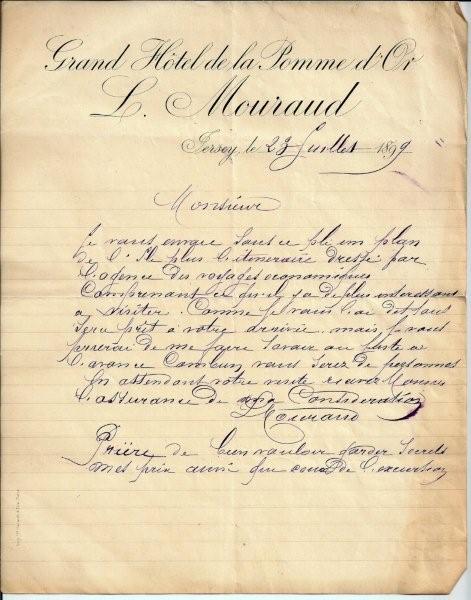 Grand Hôtel de la Pomme d'Or
L. Mouraud
Jersey, le 23 Juillet 1899
Monsieur
Je vous envoie sous ce pli un plan
de l'Ile plus l'itineraire dressé par
l'agence des voyages economiques
Comprenant ce qu'il y a de plus interessant
a visiter. Comme je vous l'ai dit tout
sera prêt a votre arrivée, mais je vous
prierai de me faire savoir au juste a
l'avance combien vous serez de personnes
En attendant votre visite recevez Monsieur
l'assurance de ma Consideration
Mouraud
Prière de bien vouloir garder secrets
mes prix ainsi que ceux de l'excursion